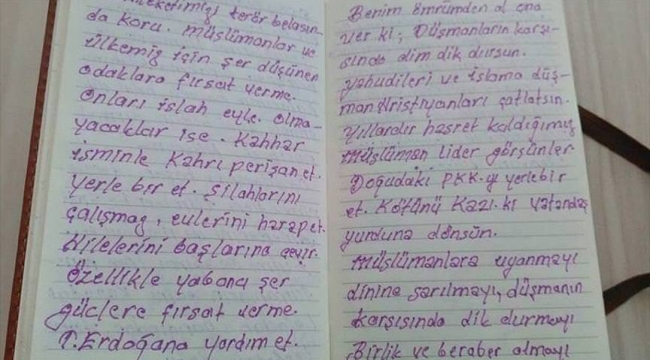 terör belasın-
da koru. Müslümanlar ve
ülkemiz için şer düşünen
odaklara fırsat verme.
Onları islah eyle. Olma-
yacaklar ise. Kahhar
isminle Kahrı perişan et.
Yerle bir et. Silahlarını
çalışmaz, evlerini harap et.
Hilelerini başlarına çevir.
Özellikle yabancı şer
güçlere fırsat verme.
T. Erdoğana yardım et.
Benim ömrümden al ona
ver ki; Düşmanların karşı-
sında dim dik dursun.
Yahudileri ve islama düş-
man Hristiyanları çatlatsın.
Yıllardır hasret kaldığımız
Müslüman lider görsünler
Doğudaki PKK.yı yerlebir
et. Kökünü Kazı.ki vatandaş
yurduna dönsün.
Müslümanlara uyanmayı
dinine sarılmayı, düşmanın
karşısında dik durmayı
Birlik ve beraber olmayı